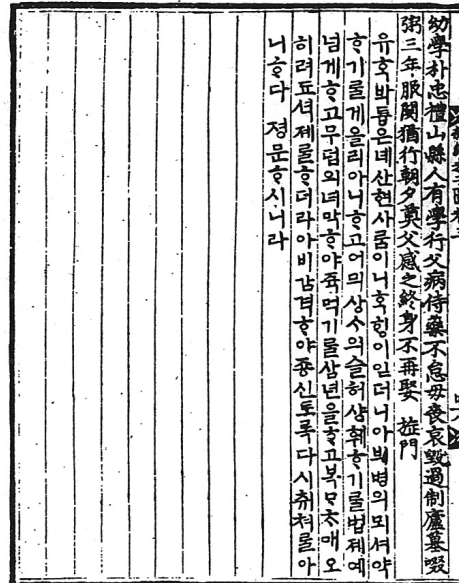 幼學朴忠禮山縣人有學行父病侍藥不怠毋喪哀毀過制廬墓啜
粥三年服闋猶行朝夕奠父感之終身不再娶 旌門
유ᄒᆞᆨ박튱은녜산현사ᄅᆞᆷ이니ᄒᆞᆨᄒᆡᆼ이잇더니아비병의뫼셔약
ᄒᆞ기ᄅᆞᆯ게을리아니ᄒᆞ고어믜상ᄉᆞ의슬허샹훼ᄒᆞ기ᄅᆞᆯ법졔예
넘게ᄒᆞ고무덤의녀막ᄒᆞ야쥭먹기ᄅᆞᆯ삼년을ᄒᆞ고복ᄆᆞᄎᆞ매오
히려됴셕졔ᄅᆞᆯᄒᆞ더라아비감격ᄒᆞ야죵신토록다시취쳐ᄅᆞᆯ아
니ᄒᆞ다 졍문ᄒᆞ시니라